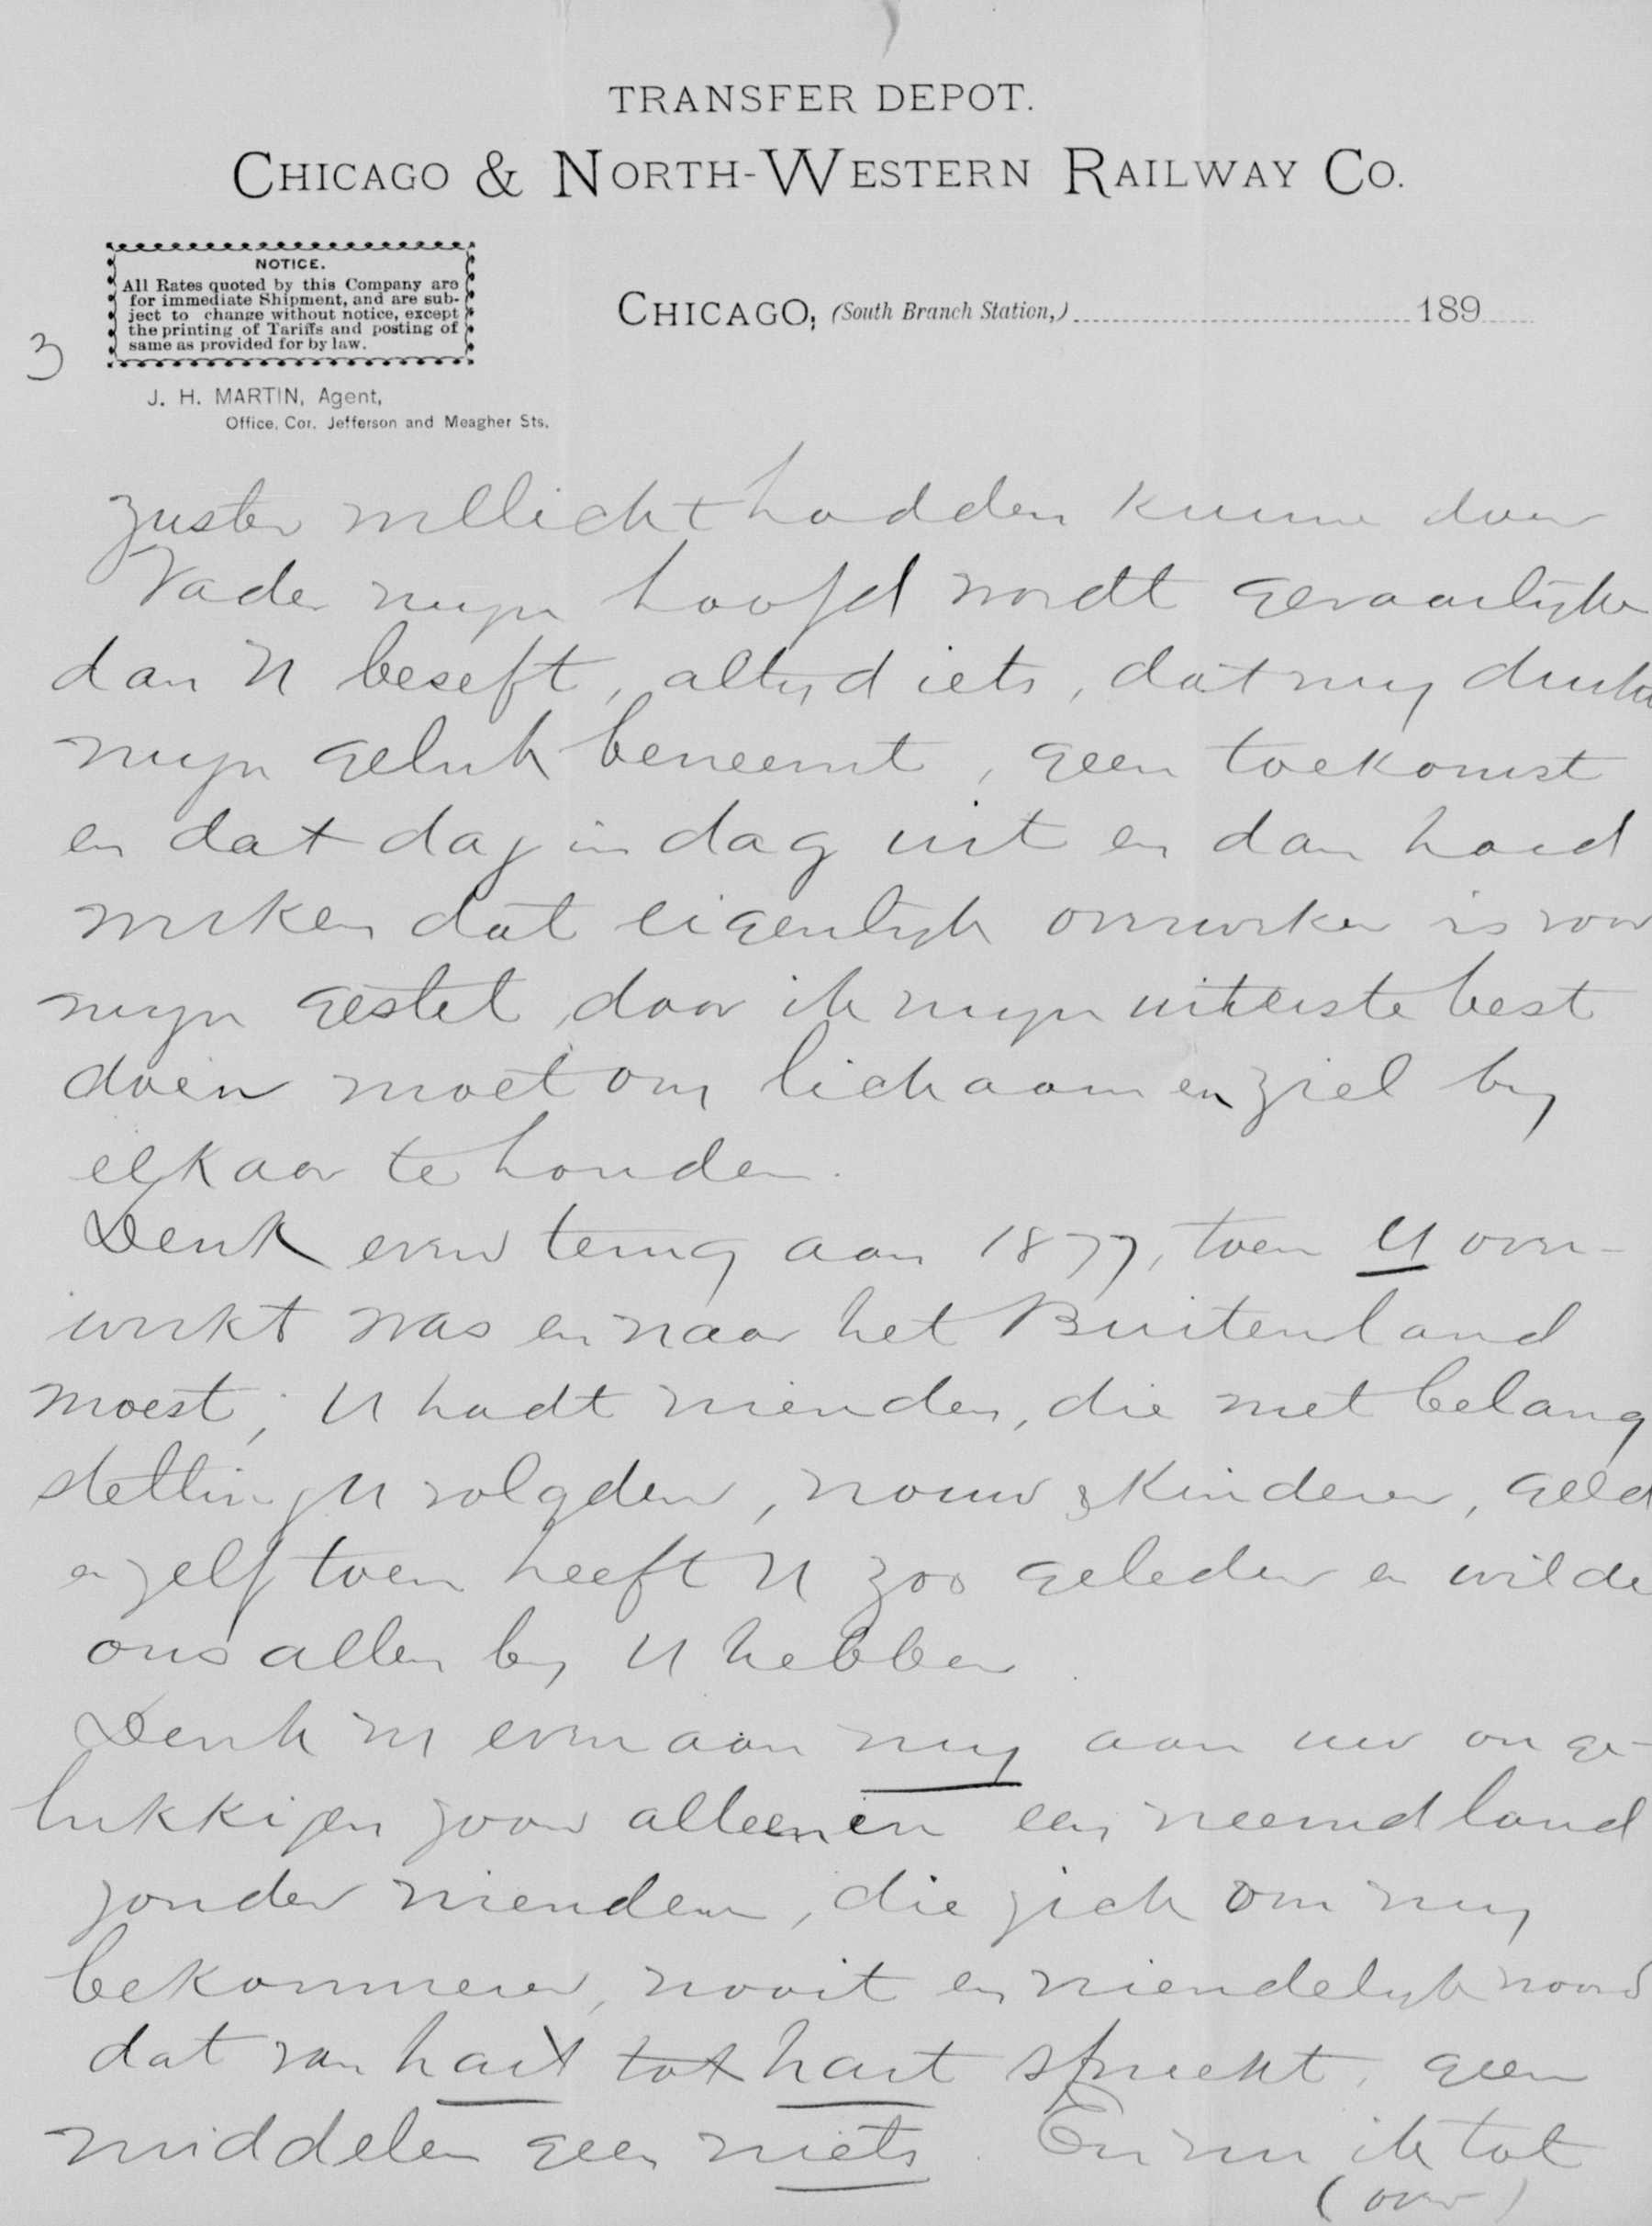 TRANSFER DEPOT.
CHICAGO & NORTH-WESTERN RAILWAY CO.
NOTICE.
All Rates quoted by this Company are
for immediate Shipment, and are sub-
ject to change without notice, except
the printing of Tariffs and posting of
same as provided for by law.
CHICAGO, (South Branch Station,) 189
3
J. H. MARTIN, Agent,
Office, Cor. Jefferson and Meagher Sts.
zuster wellicht hadden kunnen doen
Vader mijn hoofd wordt gevaarlijker
dan U beseft, altijd iets, dat mij drukt
mijn geluk beneemt, geen toekomst
en dat dag in dag uit en dan hard
werken dat eigenlijk overwerken is voor
mijn gestel, daar ik mijn uiterste best
doen moet om lichaam en ziel bij
elkaar te houden.
Denk even terug aan 1877, toen U over-
werkt was en naar het Buitenland
moest; U hadt vrienden, die met belang
stelling U volgden, vrouw & kinderen, geld
en zelf toen heeft U zoo geleden en wilde
ons allen bij U hebben.
Denk nu even aan mij aan uw onge-
lukkigen zoon alleen in een vreemd land
zonder vrienden, die zich om mij
bekommeren, nooit en vriendelijk woord
dat van hart tot hart spreekt, geen
middelen geen niets. En nu ik tot
(over)